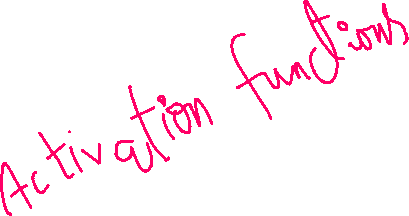 Activation functions